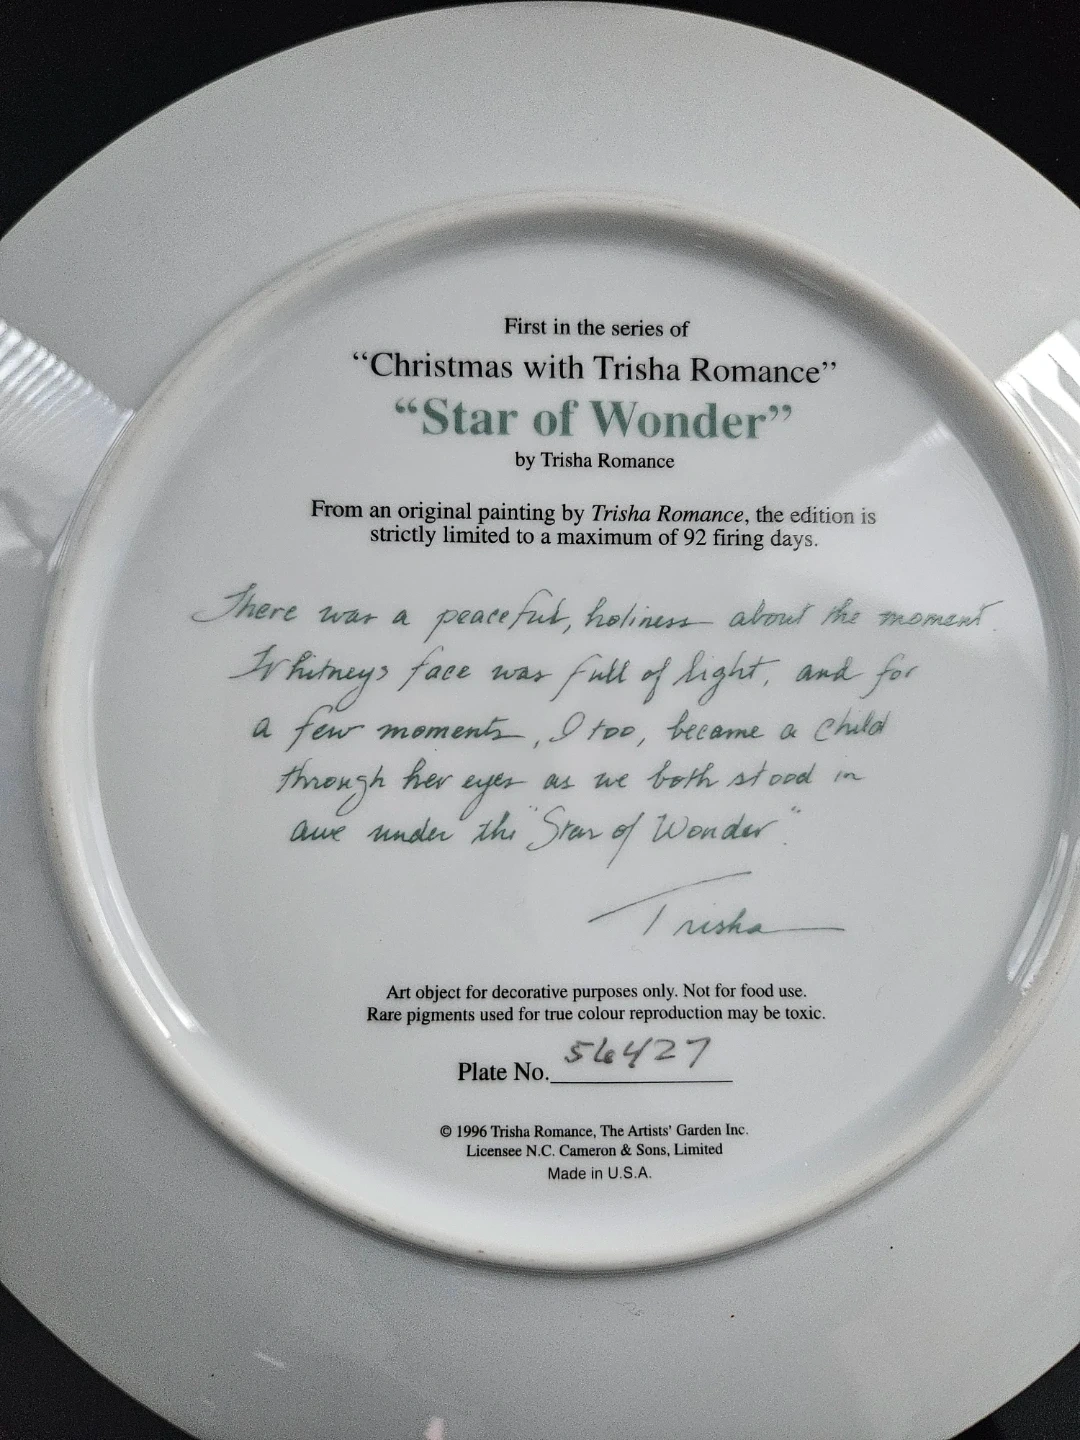 First in the series of
“Christmas with Trisha Romance”
“Star of Wonder”
by Trisha Romance
From an original painting by Trisha Romance, the edition is
strictly limited to a maximum of 92 firing days.
There was a peaceful, holiness about the moment.
Whitneys face was full of light, and for
a few moments, I too, became a child
through her eyes as we both stood in
awe under the "Star of Wonder".
Trisha
Art object for decorative purposes only. Not for food use.
Rare pigments used for true colour reproduction may be toxic.
Plate No. 56427
© 1996 Trisha Romance, The Artists' Garden Inc.
Licensee N.C. Cameron & Sons, Limited
Made in U.S.A.